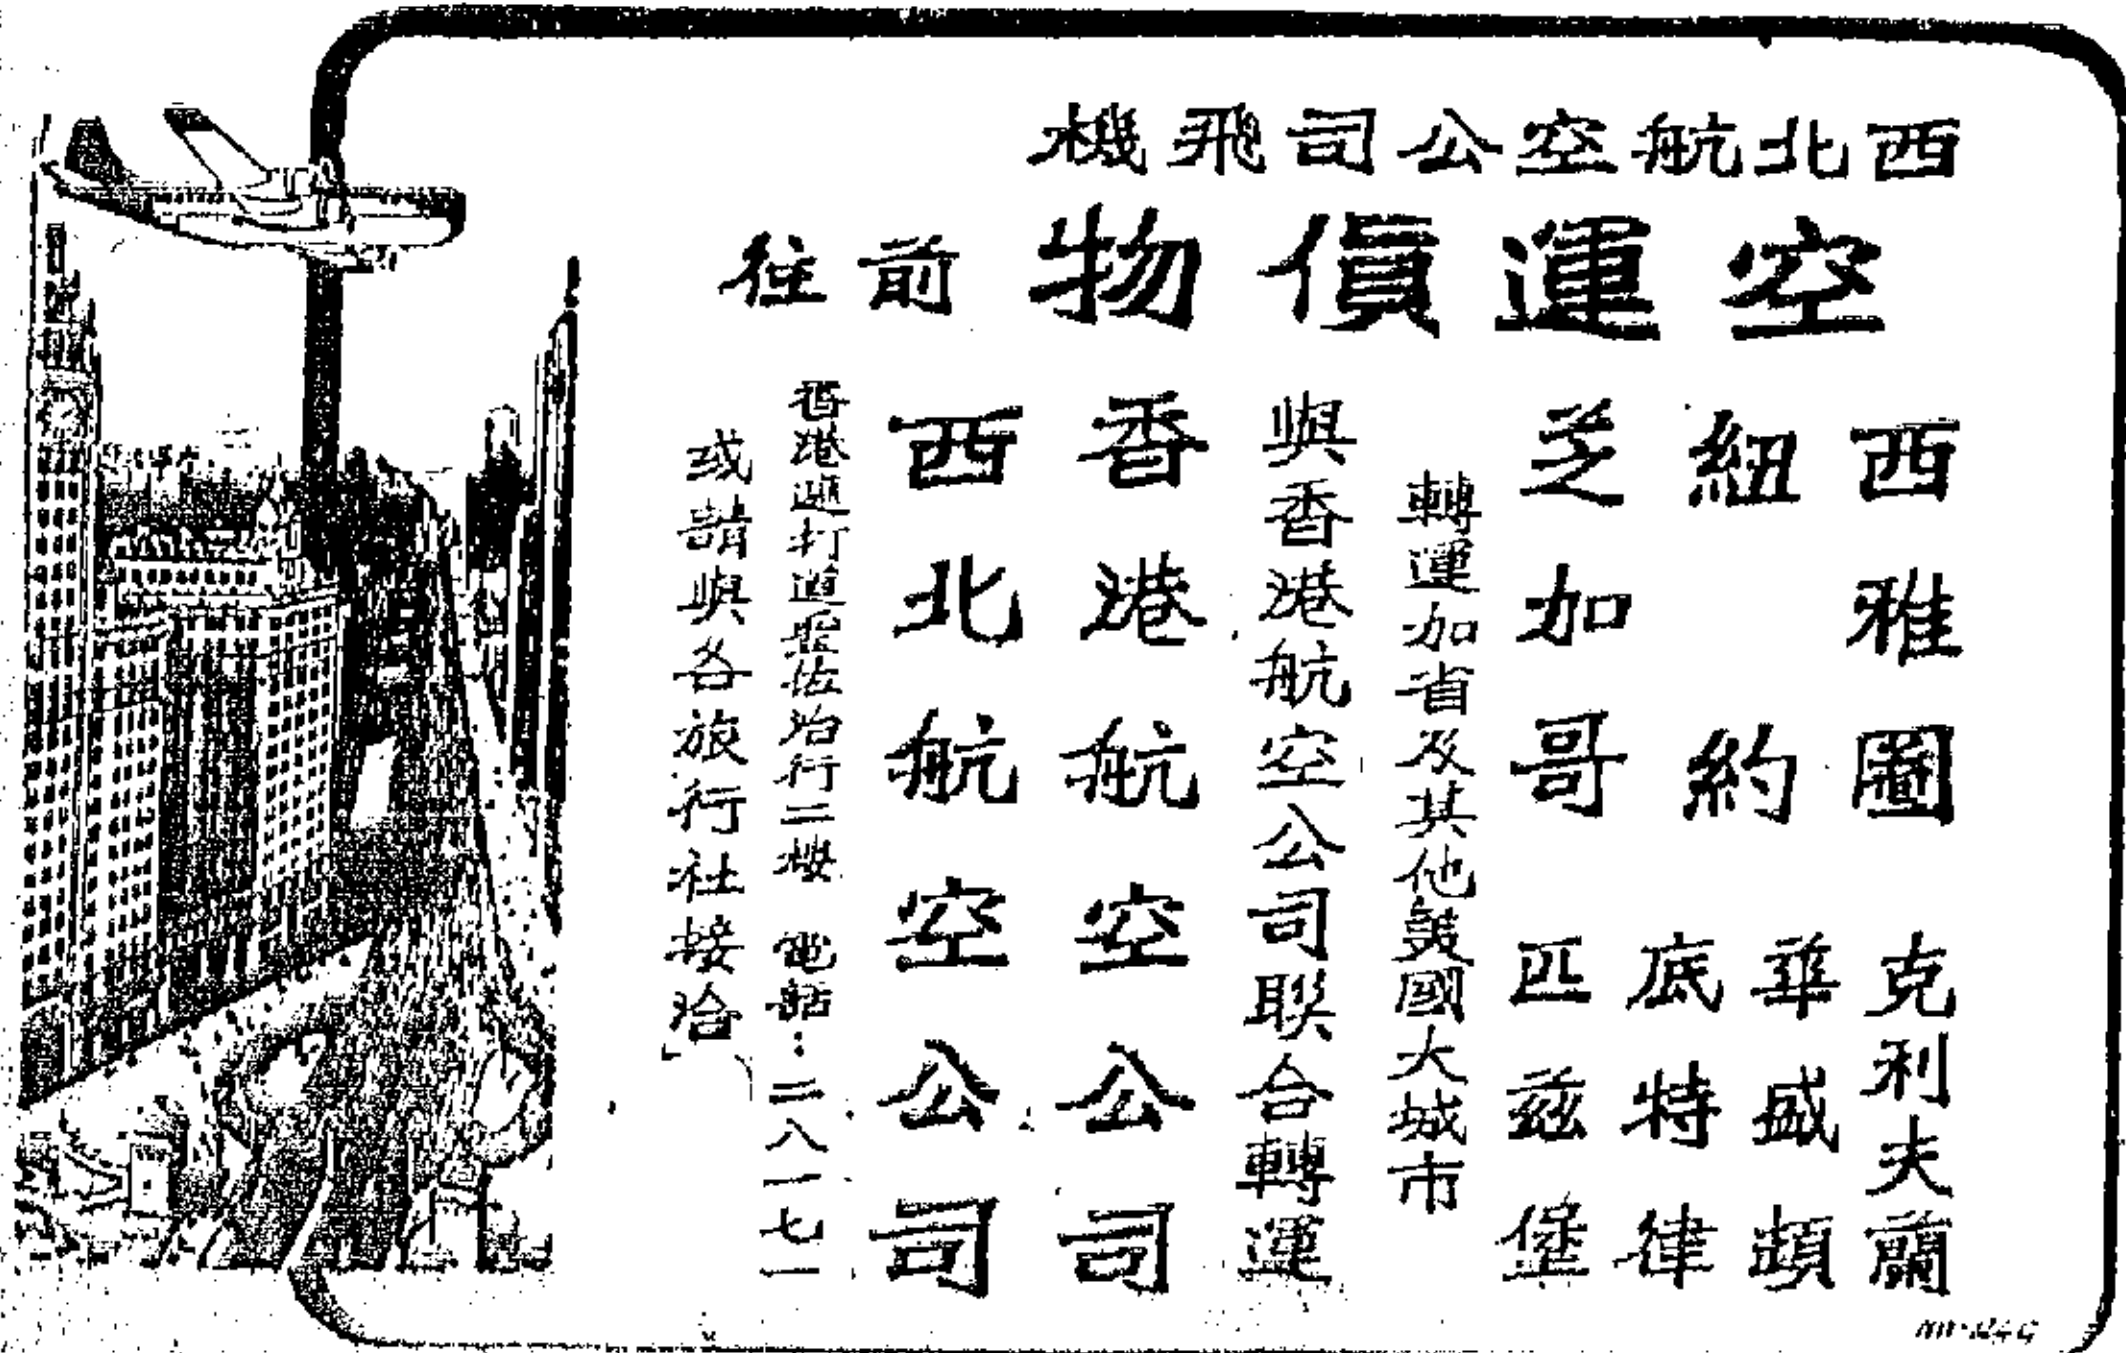 西北航空公司飛機
空運貨物前往
西雅圖
紐約
芝加哥
克利夫蘭
華盛頓
底特律
匹茲堡
轉運加省及其他美國大城市
與香港航空公司聯合轉運
香港航空公司
西北航空公司
香港遮打道聖佐治行二樓 電話：二八一七一
或請與各旅行社接洽